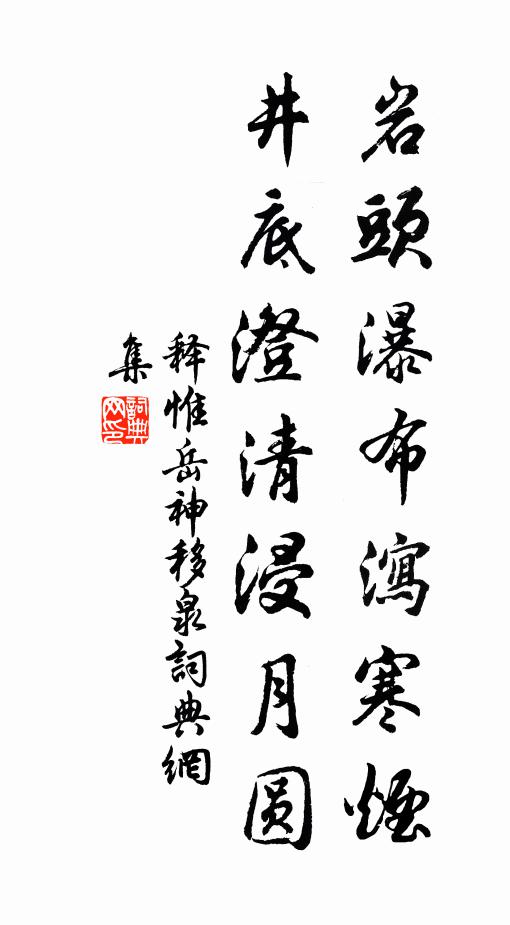 岩頭瀑布瀉寒煙
井底澄清浸月圓
释惟岳神移泉詞典網
集
詞典網印